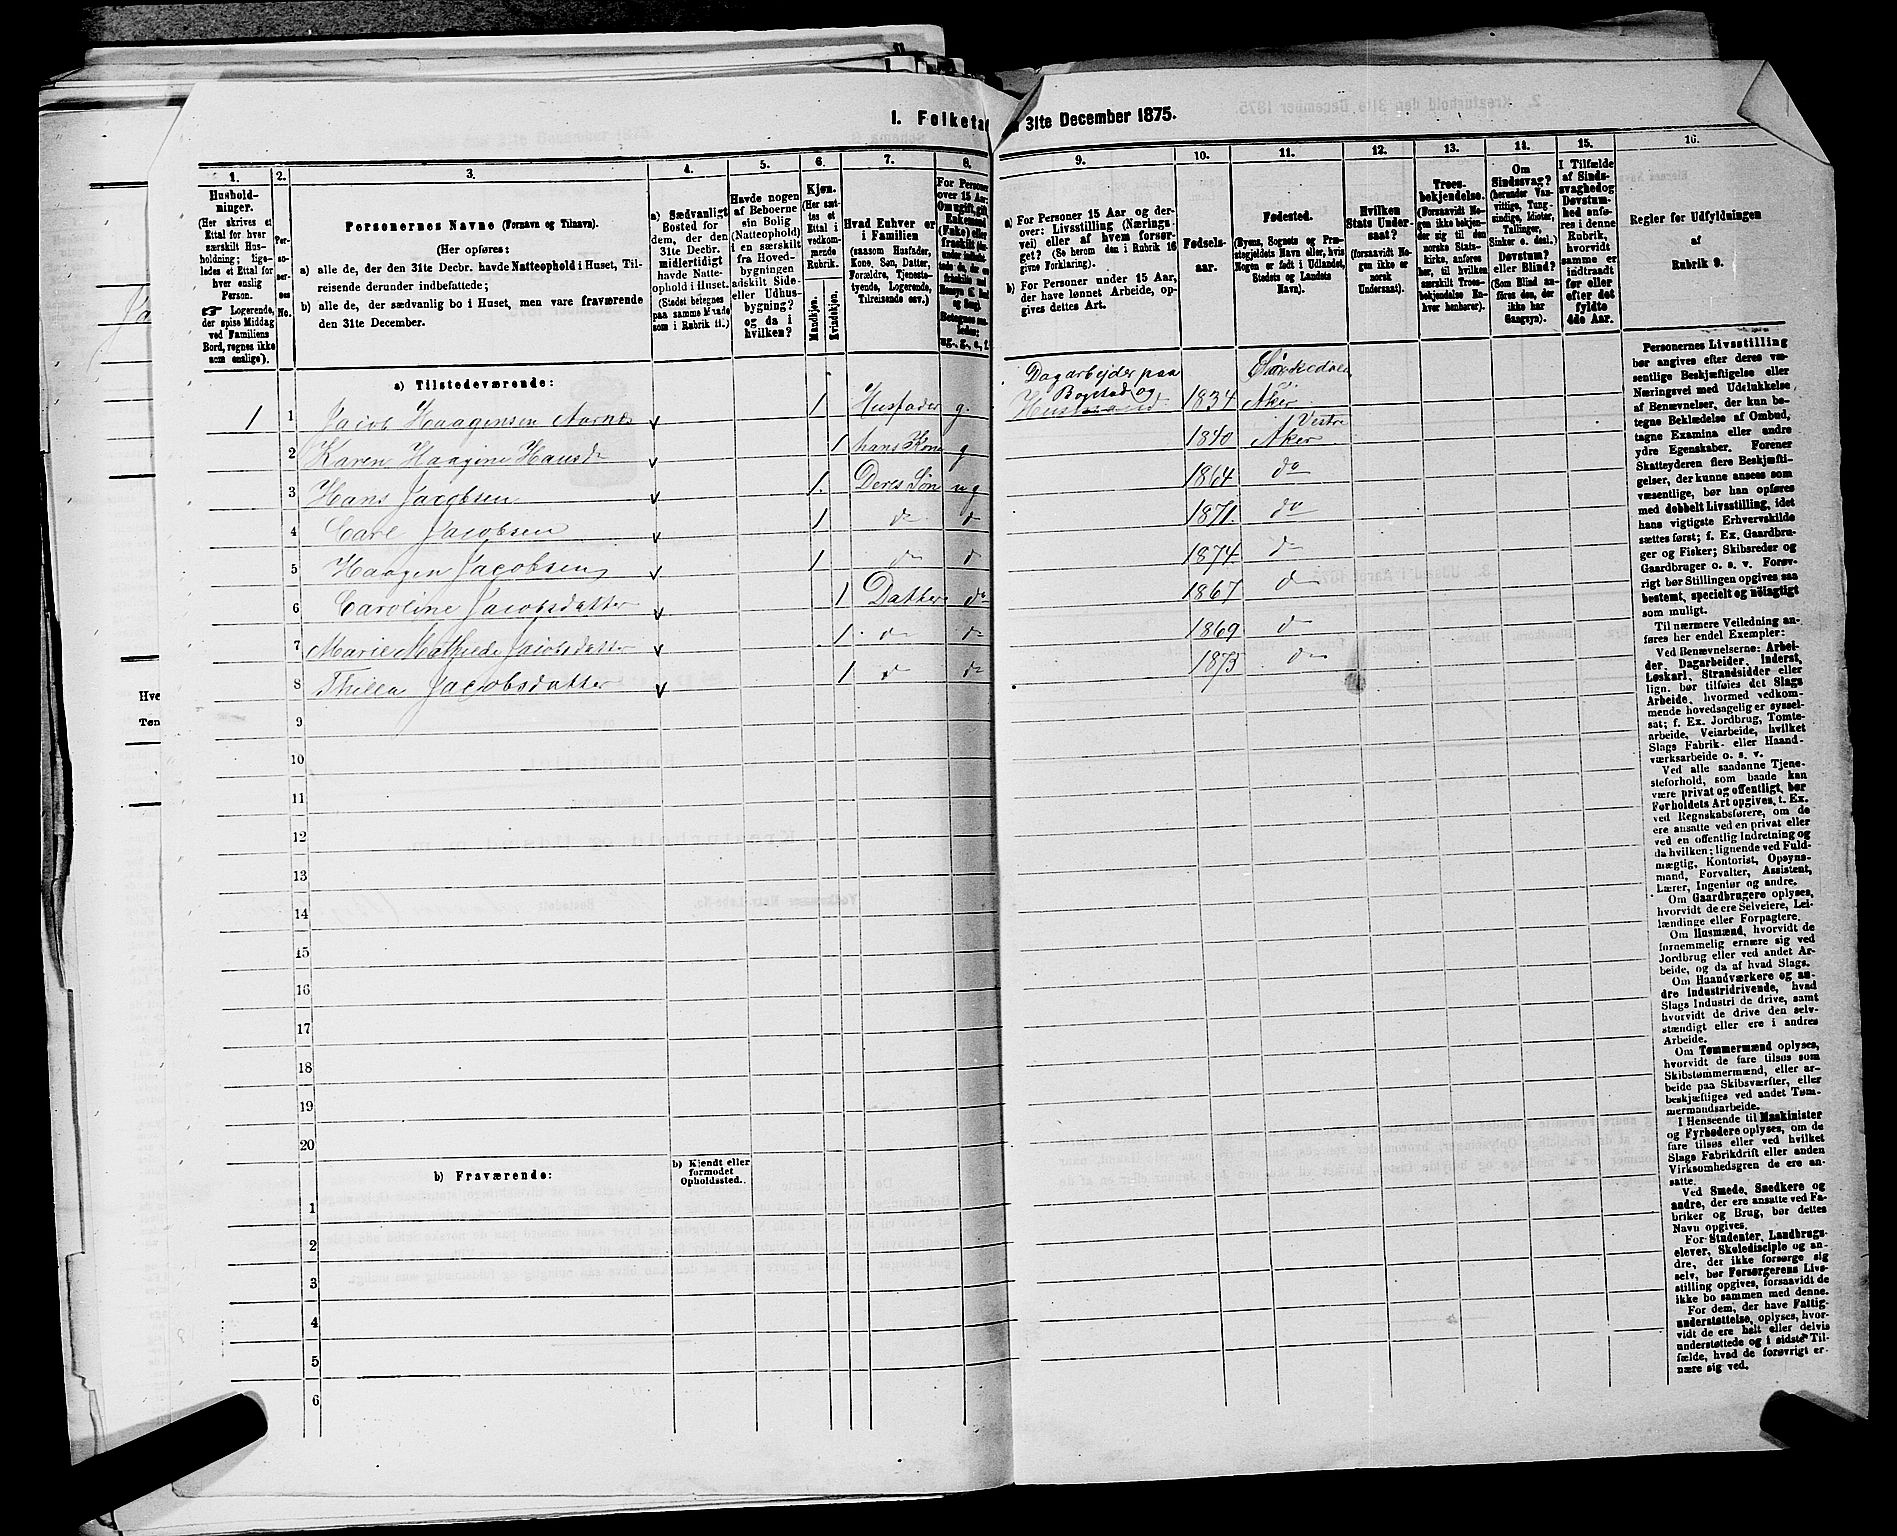 I. Folketa
n 31te December 1875.
1. 2. 3. 4. 5. 6. 7. 8. 9. 10. 11. 12. 13. 14. 15. 16.
Hushold-
ninger.
(Her skrives et
Ettal for hver
særskilt Hus-
holdning; lige-
ledes et Ettal for
hver enslig
Person.
☞ Logerende,
der spise Middag
ved Familiens
Bord, regnes ikke
som enslige).
Per-
so-
ner-
nes
No.
Personernes Navne (Fornavn og Tilnavn).
(Her opføres:
a) alle de, der den 31te Decbr. havde Natteophold i Huset, Til-
reisende derunder indbefattede;
b) alle de, der sædvanlig bo i Huset, men vare fraværende
den 31te December.
a) Sædvanligt
Bosted for
dem, der den
31te Decbr.
midlertidigt
havde Natte-
ophold i Huset.
(Stedet betegnes
paa samme Maade
som i Rubrik 11.)
Havde nogen
af Beboerne
sin Bolig
(Natteophold)
i en særskilt
fra Hoved-
bygningen
adskilt Side-
eller Udhus-
bygning?
og da i
hvilken?
Kjøn.
(Her sæt-
tes et
Ettal i
vedkom-
mende
Rubrik.
Mandkjøn.
Kvindekjøn.
Hvad Enhver er
i Familien
(saasom Husfader,
Kone, Søn, Datter,
Forældre, Tjeneste-
tyende, Logerende,
Tilreisende osv.)
For Personer
over 15 Aar:
Om ugift, gift,
Enkemand
(Enke) eller
fraskilt
ug., g., e., f.
a) For Personer 15 Aar og der-
over: Livsstilling (Nærings-
vei) eller af hvem forsør-
get? (Se herom den i Rubrik 16
givne Forklaring).
b) For Personer under 15 Aar,
der have lønnet Arbeide, op-
gives dettes Art.
Fødsels-
aar.
Fødested.
(Byens, Sognets og Præ-
stegjeldets Navn eller, hvis
Nogen er født i Udlandet,
Stedets og Landets
Navn).
Hvilken
Stats Under-
saat?
(forsaavidt No-
gen ikke er
norsk
Undersaat).
Troes-
bekjendelse.
(Forsaavidt No-
gen ikke bekjen-
der sig til den
norske Stats-
kirke, anføres
her, til hvilken
særskilt Troes-
bekjendelse En-
hver henhører).
Om
Sindssvag?
(herunder Van-
vittige, Tung-
sindige, Idioter,
Tullinger,
Sinker o. desl.)
Døvstum?
eller Blind?
(Som Blind an-
føres den, der
ikke har
Gangsyn).
I Tilfælde
af Sinds-
svaghed og
Døvstum-
hed anfø-
res i denne
Rubrik,
hvorvidt
samme er
indtraadt
før eller
efter det
fyldte
4de Aar.
Regler for Udfyldningen
af
Rubrik 9.
a) Tilstedeværende:
1 1 Jacob Haagensen Aarnes v 1 Husfader g. Dagarbejder paa Bogstad og Husmand 1834 Sørkedalen Aker
2 Karen Haagine Hansd v 1 hans Kone g 1840 Vestre Aker
3 Hans Jacobsen v 1. Deres Søn ug 1864 do
4 Carl Jacobsen v 1 do do 1871. do
5 Haagen Jacobsen v 1 do d 1874. do
6 Caroline Jacobsdatter v 1 Datter do 1867. do
7 Marie Mathilde Jacobsdatter v 1. do do 1869. do
8 Thilla Jacobsdatter v 1 do do 1873 do
9
10
11
12
13
14
15
16
17
18
19
20
b) Fraværende:
b) Kjendt eller
formodet
Opholdssted.
1
2
3
4
5
6
Personernes Livsstilling
bør angives efter deres væ-
sentlige Beskjæftigelse eller
Næringsvei med Udelukkelse
af Benævnelser, der kun be-
tegne Beklædelse af Ombud,
tagne Examina eller andre
ydre Egenskaber. Forener
Skatteyderen flere Beskjæfti-
gelser, der kunne ansees som
væsentlige, bør han opføres
med dobbelt Livsstilling, idet
hans vigtigste Erhvervskilde
sættes først; f. Ex. Gaardbru-
ger og Fisker; Skibsreder og
Gaardbruger o. s. v. Forøv-
rigt bør Stillingen opgives saa
bestemt, specielt og nøiagtigt
som muligt.
Til nærmere Veiledning an-
føres her endel Exempler:
Ved Benævnelserne: Arbei-
der, Dagarbeider, Inderst,
Løskarl, Strandsidder eller
lign. bør tilføies det Slags
Arbeide, hvormed vedkom-
mende hovedsagelig er syssel-
sat; f. Ex. Jordbrug, Tomte-
arbeide, Veiarbeide, hvilket
Slags Fabrik- eller Haand-
værksarbeide o. s. v.
Ved alle saadanne Tjene-
steforhold, som baade kan
være privat og offentligt, bør
Forholdets Art opgives, t. Ex.
ved Regnskabsførere, om de
ere ansatte ved en privat eller
ved en offentlig Indretning og
da hvilken; lignende ved Fuld-
mægtig, Kontorist, Opsyns-
mand, Forvalter, Assistent,
Lærer, Ingeniør og andre.
Om Gaardbrugere oplyses,
hvorvidt de ere Selveiere, Lei-
lændinge eller Forpagtere.
Om Husmænd, hvorvidt de
fornemmelig ernære sig ved
Jordbrug eller ved andet Ar-
beide, og da af hvad Slags.
Om Haandværkere og an-
dre industridrivende, hvad
Slags Industri de drive, samt
hvorvidt de drive den selv-
stændigt eller ere i andres
Arbeide.
Om Tømmermænd oplyses,
hvorvidt de fare tilsøs som
Skibstømmermænd, eller ar-
beide paa Skibsværfter, eller
beskjæftiges ved andet Tøm-
mermandsarbeide.
I Henseende til Maskinister
og Fyrbødere oplyses, om de
fare tilsøs eller ved hvilket
Slags Fabrikdrift eller anden
Virksomhedsgren de ere an-
satte.
Ved Smede, Snedkere og
andre, der ere ansatte ved Fa-
briker og Brug, bør dettes
Navn opgives.
For Studenter, Landbrugs-
elever, Skoledisciple og an-
dre, der ikke forsørge sig
selv, bør Forsørgerens Livs-
stilling opgives, forsaavidt de
ikke bo sammen med denne.
For dem, der have Fattig-
understøttelse, oplyses, hvor-
vidt de ere helt eller delvis
understøttede og i sidste Til-
fælde, hvad de forøvrigt er-
nære sig ved.